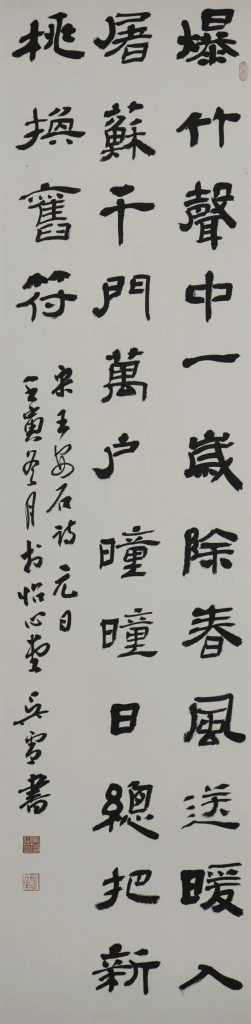 爆竹聲中一歲除春風送暖入
屠蘇千門萬户曈曈日總把新
桃換舊符
宋王安石詩元日
壬寅冬月於怡心堂吳雪書